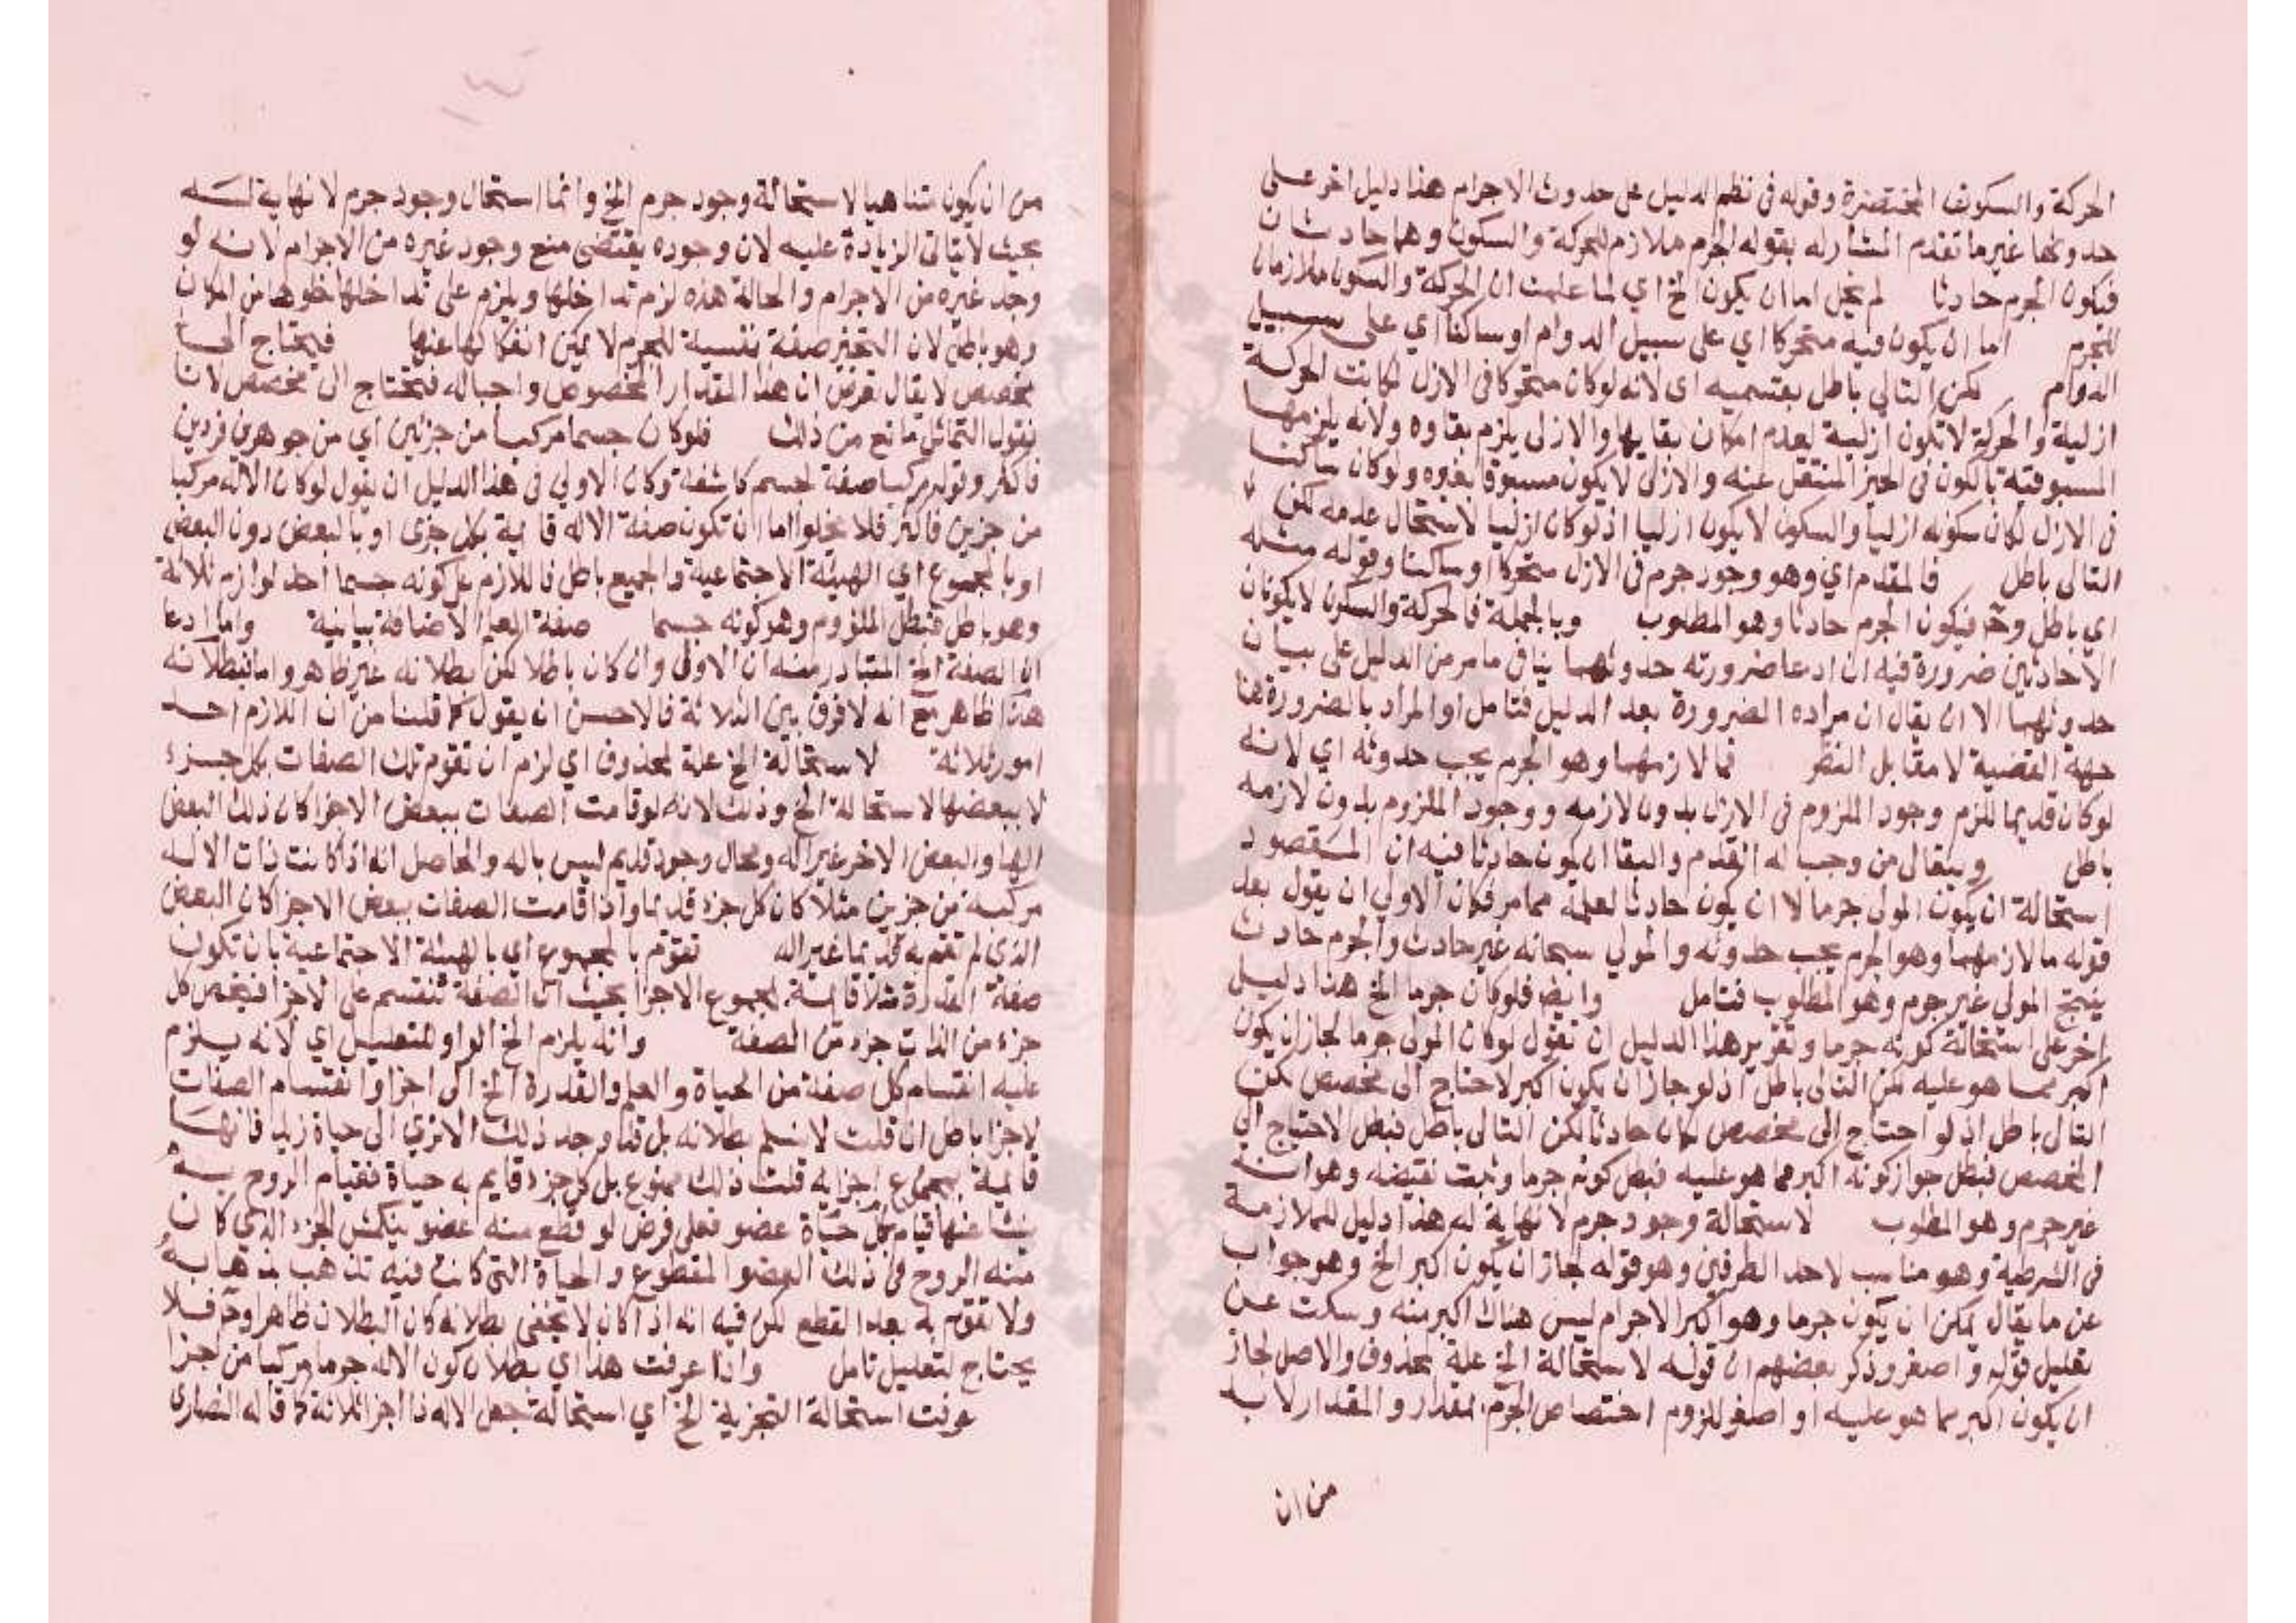 الحركة والسكون المختصرة وقوله في نظم الدليل على حدوث الاجرام هذا دليل اخر على
حدوثها غير ما تقدم المشار له بقوله الجرم ملازم للحركة والسكون وهما حادثان
فيكون الجرم حادثا لم يخل اما ان يكون الخ اي لما علمت ان الحركة والسكون ملازمان
للجرم اما ان يكون فيه متحركا اي على سبيل الدوام او ساكنا اي على سبيل
الدوام لكن التالي باطل بقسميه اي لانه لو كان متحركا في الازل لكانت الحركة
ازلية والحركة لا تكون ازلية لعدم امكان بقايها والازلي يلزم بقاوه ولانه يلزمها
المسبوقية بالكون في الحيز المنتقل عنه والازلي لا يكون مسبوقا بغيره ولو كان ساكنا
في الازل لكان سكونه ازليا والسكون لا يكون ازليا اذ لو كان ازليا لاستحال عدمه لكن
التالي باطل فالمقدم اي وهو وجود جرم في الازل متحركا او ساكنا وقوله مثله
اي باطل وح فيكون الجرم حادثا وهو المطلوب وبالجملة فالحركة والسكون لا يكونان
الا حادثين ضرورة فيه ان ادعا ضرورته حدوثهما ينافي ما مر من الدليل على بيان
حدوثهما الا ان يقال ان مراده الضرورة بعد الدليل فتامل او المراد بالضرورة هنا
جهة القضية لا مقابل النظر فما لازمهما وهو الجرم يجب حدوثه اي لانه
لو كان قديما للزم وجود الملزوم في الازل بدون لازمه ووجود الملزوم بدون لازمه
باطل ويتعالى من وجب له القدم والبقا ان يكون حادثا فيه ان المقصود
استحالة ان يكون المولى جرما لا ان يكون حادثا لعلمه مما مر فكان الاولي ان يقول بعد
قوله ما لازمهما وهو الجرم يجب حدوثه والمولي سبحانه غير حادث والجرم حادث
ينتج المولى غير جرم وهو المطلوب فتامل وايضا فلو كان جرما الخ هذا دليل
اخر على استحالة كونه جرما وتقرير هذا الدليل ان تقول لو كان المولى جرما لجاز ان يكون
اكبر مما هو عليه لكن التالى باطل اذ لو جاز ان يكون اكبر لاحتاج الى مخصص لكن
التالى باطل اذ لو احتاج الى مخصص لكان حادثا لكن التالى باطل فبطل الاحتياج الى
المخصص فبطل جواز كونه اكبر مما هو عليه فبطل كونه جرما وثبت نقيضه وهو انه
غير جرم وهو المطلوب لاستحالة وجود جرم لا نهاية له هذا دليل للملازمة
في الشرطية وهو مناسب لاحد الطرفين وهو قوله لجاز ان يكون اكبر الخ وهو جواب
عن ما يقال يمكن ان يكون جرما وهو اكبر الاجرام ليس هناك اكبر منه وسكت عن
تعليل قوله واصغر وذكر بعضهم ان قوله لاستحالة الخ علة لمحذوف والاصل لجاز
ان يكون اكبر مما هو عليه او اصغر للزوم اختصاص الجرم بمقدار والمقدار لا بد
من ان
من ان يكون متناهيا لاستحالة وجود جرم الخ وانما استحال وجود جرم لا نهاية له
بحيث لا يتاتى الزيادة عليه لان وجوده يقتضى منع وجود غيره من الاجرام لانه لو
وجد غيره من الاجرام والحالة هذه لزم تداخلها ويلزم على تداخلها من امكان
وهو باطل لان التحيز صفة نفسية للجرم لا يمكن انفكاكها عنها فيحتاج الى
مخصص لا يقال فرض ان هذا المقدار المخصوص واجبا له فيحتاج الى مخصص لانا
نقول التماثل مانع من ذلك فلو كان جسما مركبا من جزئين اي من جوهرين فردين
فاكثر وقوله مركبا صفة لجسم كاشفة وكان الاولي في هذا الدليل ان يقول لو كان الاله مركبا
من جزين فاكثر فلا يخلوا اما ان تكون صفة الاله قايمة بكل جزى او بالبعض دون البعض
او بالمجموع اي الهيئة الاجتماعية والجميع باطل فاللازم على كونه جسما احد لوازم ثلاثة
وهو باطل فبطل الملزوم وهو كونه جسما صفة العلم الاضافة بيانية واما ادعا
ان الصفة الخ المتبادر منه ان الاولى وان كان باطلا لكن بطلانه غير ظاهر واما فبطلانه
هذا ظاهر مع انه لا فرق بين الثلاثة فالاحسن ان يقول كما قلنا من ان اللازم احد
امور ثلاثة لاستحالة الخ علة لمحذوف اي لزم ان تقوم تلك الصفات بكل جزء
لا ببعضها لاستحالة الخ وذلك لانه لو قامت الصفات ببعض الاجزا كان ذلك البعض
الها والبعض الاخر غير اله ومحال وجود قديم ليس باله والحاصل انه اذا كانت ذات الاله
مركبة من جزين مثلا كان كل جزء قديما واذا قامت الصفات ببعض الاجزا كان البعض
الذى لم تقم به قديما غير اله تقوم بالمجموع اي بالهيئة الاجتماعية بان تكون
صفة القدرة مثلا قايمة بمجموع الاجزا بحيث ان الصفة تنقسم على الاجزا فيخص كل
جزء من الذات جزء من الصفة وانه يلزم الخ الواو للتعليل اي لانه يلزم
عليه انقسام كل صفة من الحياة والعلم والقدرة الخ الى اجزا وانقسام الصفات
لاجزا باطل ان قلت لا نسلم بطلانه بل قد وجد ذلك الا ترى الى حياة زيد فانها
قايمة بمجموع اجزايه قلت ذلك ممنوع بل كل جزء قايم به حياة فقيام الروح به
ينشا عنها قيام بكل حياة عضو فعلى فرض لو قطع منه عضو ينكمش الجزء الذي كان
منه الروح في ذلك العضو المقطوع والحياة التي كانت فيه تذهب بذهابه
ولا تقوم به بعد القطع لكن فيه انه اذا كان لا يخفى بطلانه كان البطلان ظاهرا وح فلا
يحتاج لتعليل تامل واذا عرفت هذا اي بطلان كون الاله جرما مركبا من اجزا
عرفت استحالة التجزية الخ اي استحالة جعل الاله ذا اجزا ثلاثة كما قاله النصارى